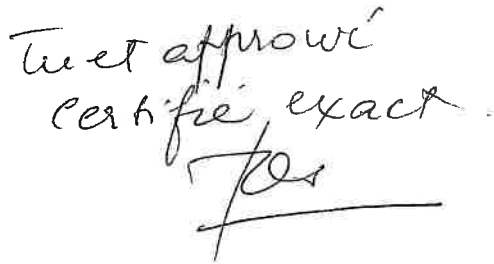 Lu et approuvé
certifié exact